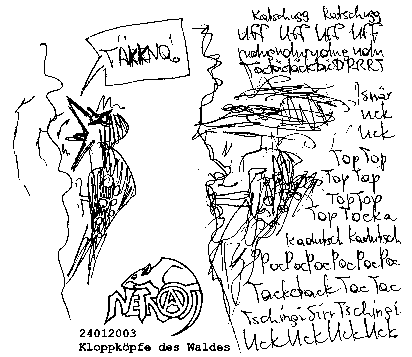 TÄKKNQ!
Katschugg Ratschugg
Uff Uff Uff Uff
Tacktäcktäckbä DRRRT
Isnär
Uck
Uck
Top Top
Top Tap
Top Top
Top Tocka
Kadutsch Kadutsch
PPocPocPocPocPocPoc
Tackdack Toc Toc
Tschingi Sirr Tschingi
Uck Uck Uck Uck
NETNAJ
24012003
Kloppköpfe des Waldes